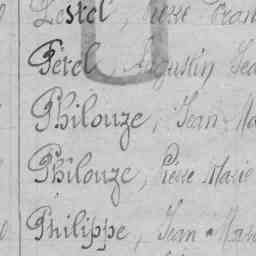 Pestel, Pierre
Pétel, Augustin Jea
Philouze, Jean Ma
Philouze, Pierre Marie
Philippe, Jean Marie